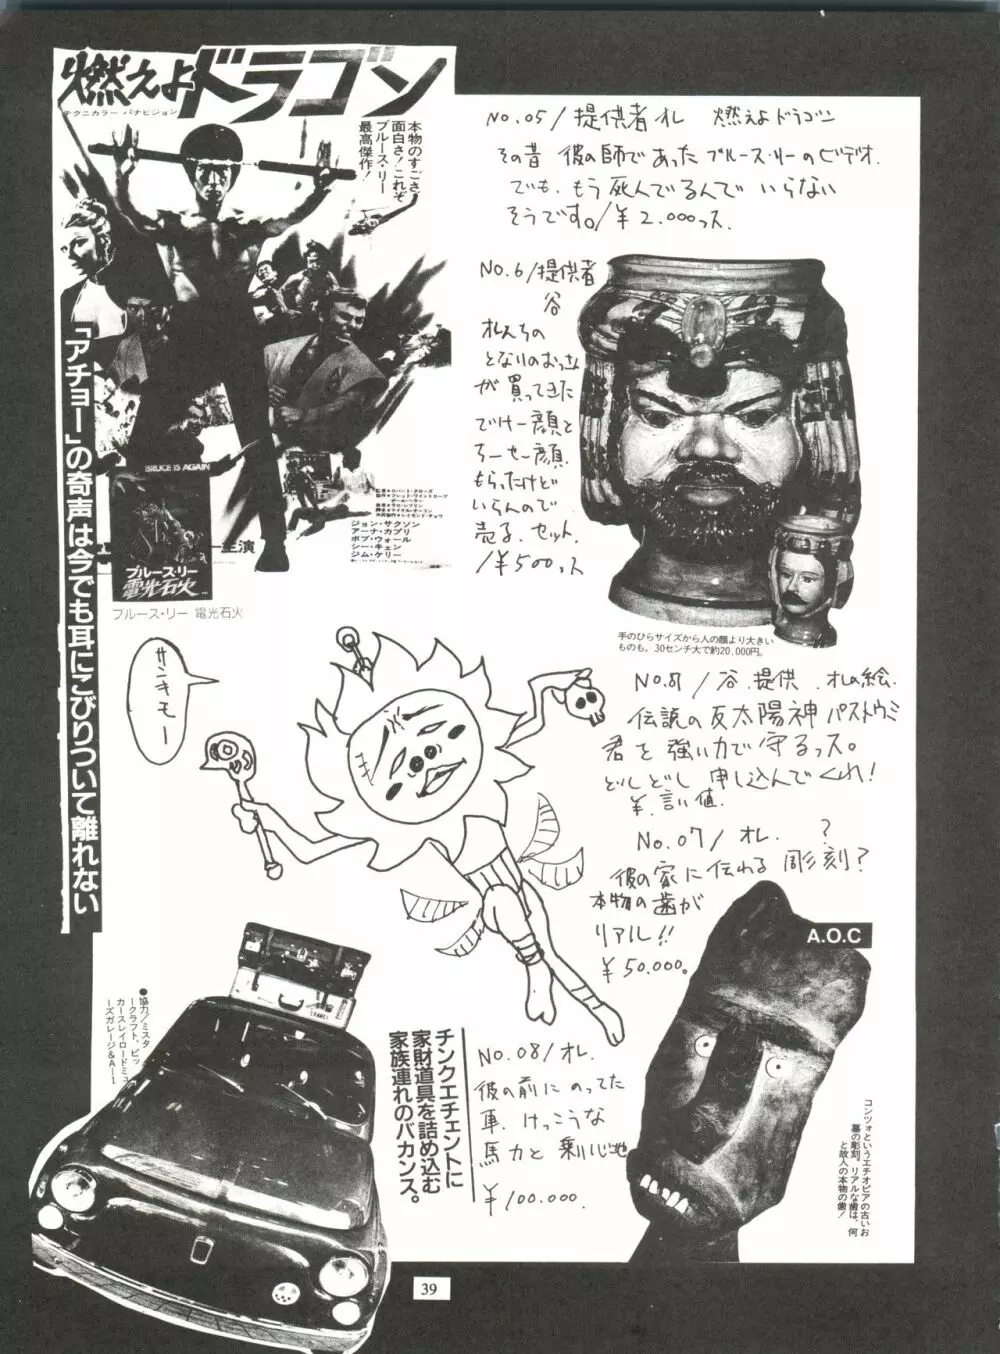 燃えよドラゴン
テクニカラー パナビジョン
本物のすごさ
面白さ!これぞ
ブルース・リー
最高傑作!
「アチョー」の奇声は今でも耳にこびりついて離れない
BRUCE IS AGAIN
主演
ジョン・サクソン
アーナ・カプリ
ボブ・ウォール
シー・キェン
ジム・ケリー
ブルース・リー
電光石火
ブルース・リー 電光石火
No.05/提供者オレ 燃えよドラゴン
その昔 彼の師であったブルース・リーのビデオ.
でも、もう死んでるんで いらない
そうです。/¥2.000っス.
No.6/提供者
谷
オレんちの
となりのおっさん
が買ってきた
でけー顔と
ちーせー顔.
もらったけど
いらんので
売る.セット.
/¥500っス
手のひらサイズから人の顔より大きい
ものも。30センチ大で約20,000円。
サンキモー
谷.提供 オレの絵.
伝説の反太陽神 パストウミ
君を強い力で守るっス。
どしどし 申し込んでくれ!
¥.言い値.
No.07/オレ. ?
彼の家に伝わる 彫刻?
本物の歯が
リアル!!
¥50.000。
A.O.C
コンツォというエチオピアの古いお
墓の彫刻。リアルな歯は、何
と故人の本物の歯!
●協力/ミスタ
ークラフト、ビッ
カースレイロードミュ
ーズガレージ&A-1
チンクエチェントに
家財道具を詰め込む
家族連れのバカンス。
No.08/オレ.
彼の前にのってた
車.けっこうな
馬力と 乗り心地
¥100.000.
39